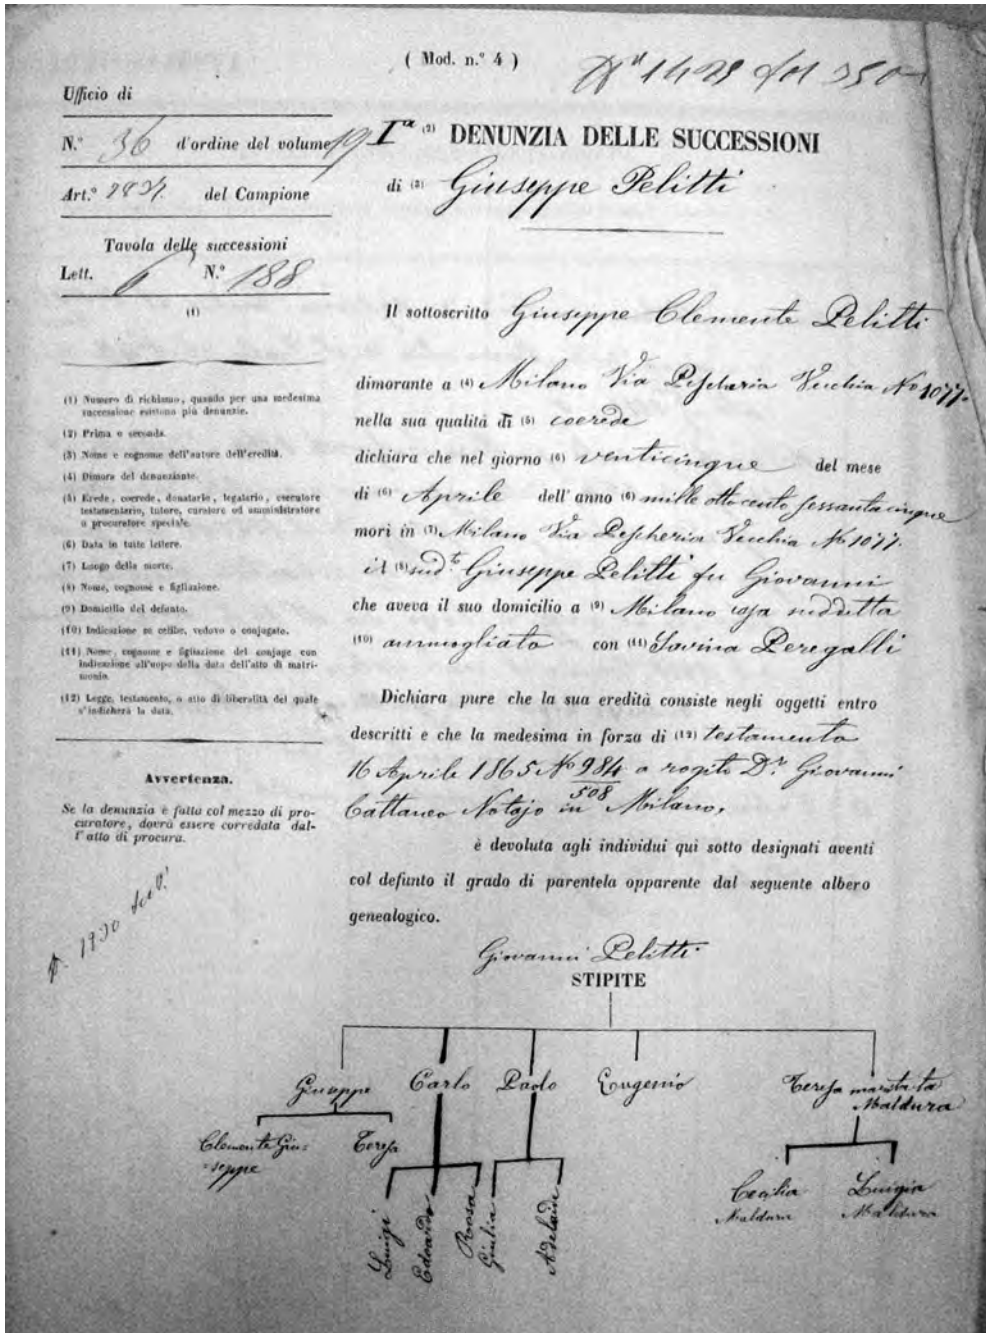 ( Mod. n.º 4 )
Ufficio di
N.º 36 d'ordine del volume 19
Art.º del Campione
Tavola delle successioni
Lett. P N.º 188
(1)
(1) Numero di richiamo, quando per una medesima
successione esistono più denunzie.
(2) Prima o seconda.
(3) Nome e cognome dell'autore dell'eredità.
(4) Dimora del denunziante.
(5) Erede, coerede, donatario, legatario, esecutore
testamentario, tutore, curatore od amministratore
o procuratore speciale.
(6) Data in tutte lettere.
(7) Luogo della morte.
(8) Nome, cognome e figliazione.
(9) Domicilio del defunto.
(10) Indicazione se celibe, vedovo o conjugato.
(11) Nome, cognome e figliazione del conjuge con
indicazione all'uopo della data dell'atto di matri-
monio.
(12) Legge, testamento, o atto di liberalità del quale
s'indicherà la data.
Avvertenza.
Se la denunzia è fatta col mezzo di pro-
curatore, dovrà essere corredata dal-
l'atto di procura.
Iª (2) DENUNZIA DELLE SUCCESSIONI
di (3) Giuseppe Pelitti
Il sottoscritto Giuseppe Clemente Pelitti
dimorante a (4) Milano Via Pescheria Vecchia Nº 1077.
nella sua qualità di (5) coerede
dichiara che nel giorno (6) venticinque del mese
di (6) Aprile dell'anno (6) mille ottocento sessantacinque
morì in (7) Milano Via Pescheria Vecchia Nº 1077.
il (8) sud.to Giuseppe Pelitti fu Giovanni
che aveva il suo domicilio a (9) Milano casa suddetta
(10) ammogliato con (11) Savina Peregalli
Dichiara pure che la sua eredità consiste negli oggetti entro
descritti e che la medesima in forza di (12) testamento
16 Aprile 1865 Nº 984/508 a rogito D.r Giovanni
Cattaneo Notajo in Milano,
è devoluta agli individui qui sotto designati aventi
col defunto il grado di parentela opparente dal seguente albero
genealogico.
Giovanni Pelitti
STIPITE
Giuseppe Carlo Paolo Eougenio Teresa maritata
Maldura
Clemente Giu-
=seppe Teresa
Luigi Edoardo Rosa Giulia Adelaide
Cecilia Luigia
Maldura Maldura